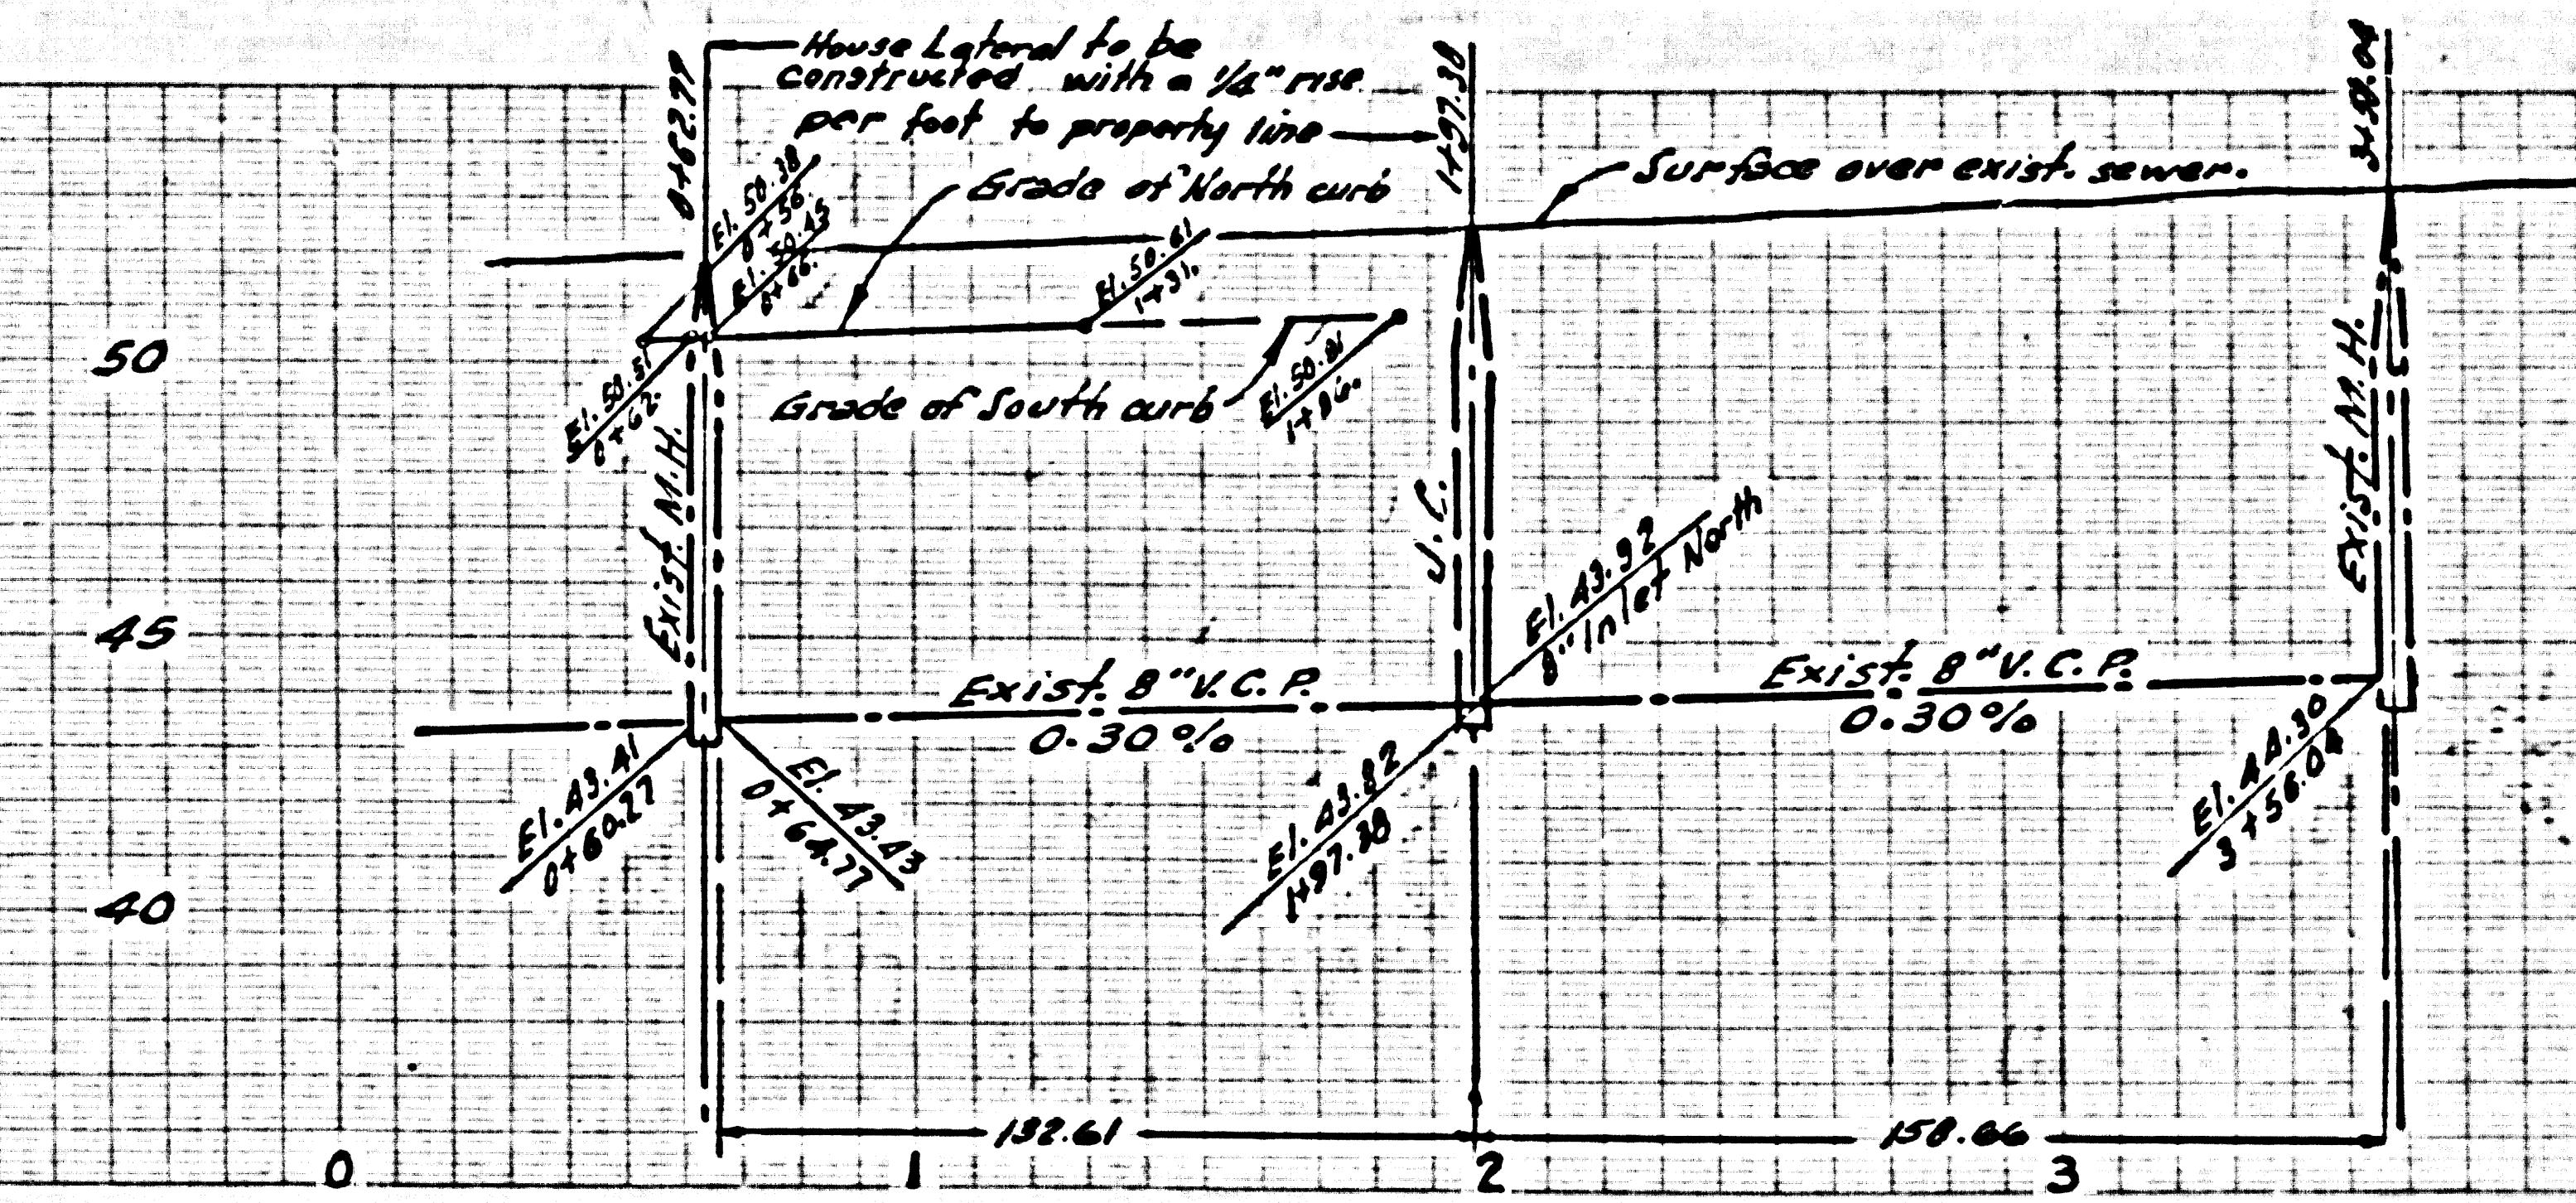 House Lateral to be
constructed with a 1/4" rise
per foot to property line
0+62.77
1+97.38
3+58.04
Grade of North curb
Surface over exist. sewer.
El. 50.38
0+56.
El. 50.45
0+66.
El. 50.61
1+31.
50
El. 50.51
0+62.
Grade of South curb
1+86.
Exist. M.H.
J.C.
Exist. M.H.
El. 43.92
8" Inlet North
45
Exist. 8" V.C.P.
0.30%
Exist. 8" V.C.P.
0.30%
El. 43.41
0+60.27
El. 43.43
0+64.77
El. 43.82
1+97.38
El. 44.30
3+56.04
40
132.61
158.66
0
1
2
3